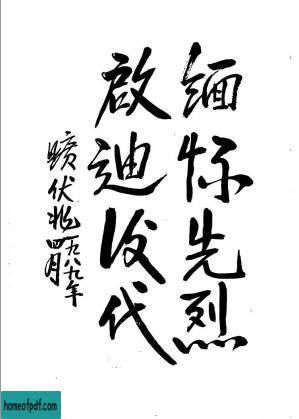 缅怀先烈
啟迪后代
旷伏兆
一九八九年
四月
homeofpdf.com